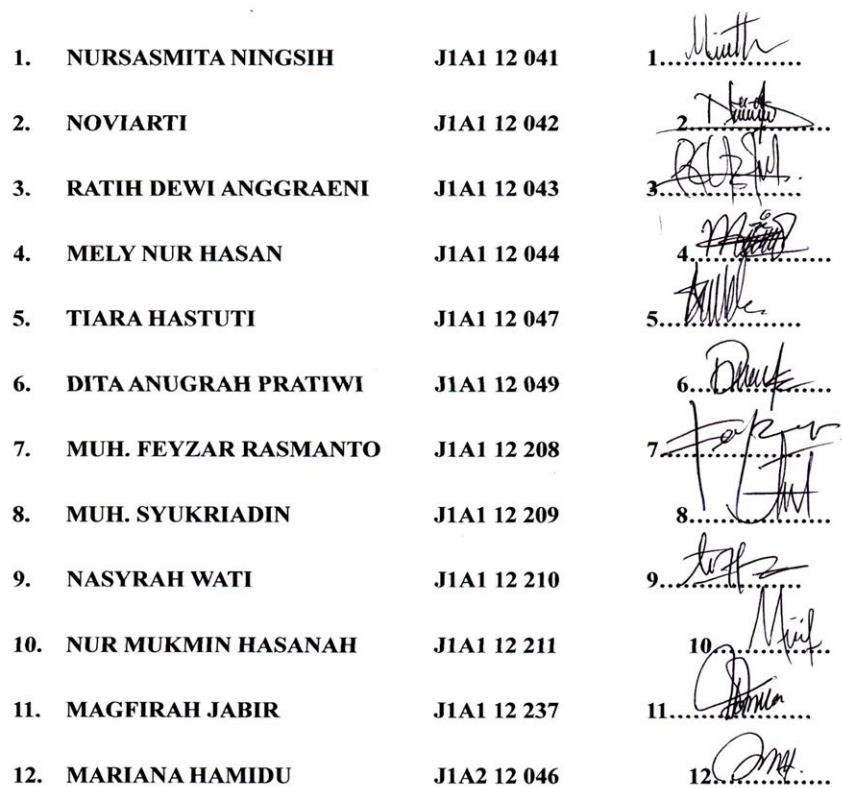 1. NURSASMITA NINGSIH J1A1 12 041 1....................
2. NOVIARTI J1A1 12 042 2....................
3. RATIH DEWI ANGGRAENI J1A1 12 043 3....................
4. MELY NUR HASAN J1A1 12 044 4....................
5. TIARA HASTUTI J1A1 12 047 5....................
6. DITA ANUGRAH PRATIWI J1A1 12 049 6....................
7. MUH. FEYZAR RASMANTO J1A1 12 208 7....................
8. MUH. SYUKRIADIN J1A1 12 209 8....................
9. NASYRAH WATI J1A1 12 210 9....................
10. NUR MUKMIN HASANAH J1A1 12 211 10....................
11. MAGFIRAH JABIR J1A1 12 237 11....................
12. MARIANA HAMIDU J1A2 12 046 12....................